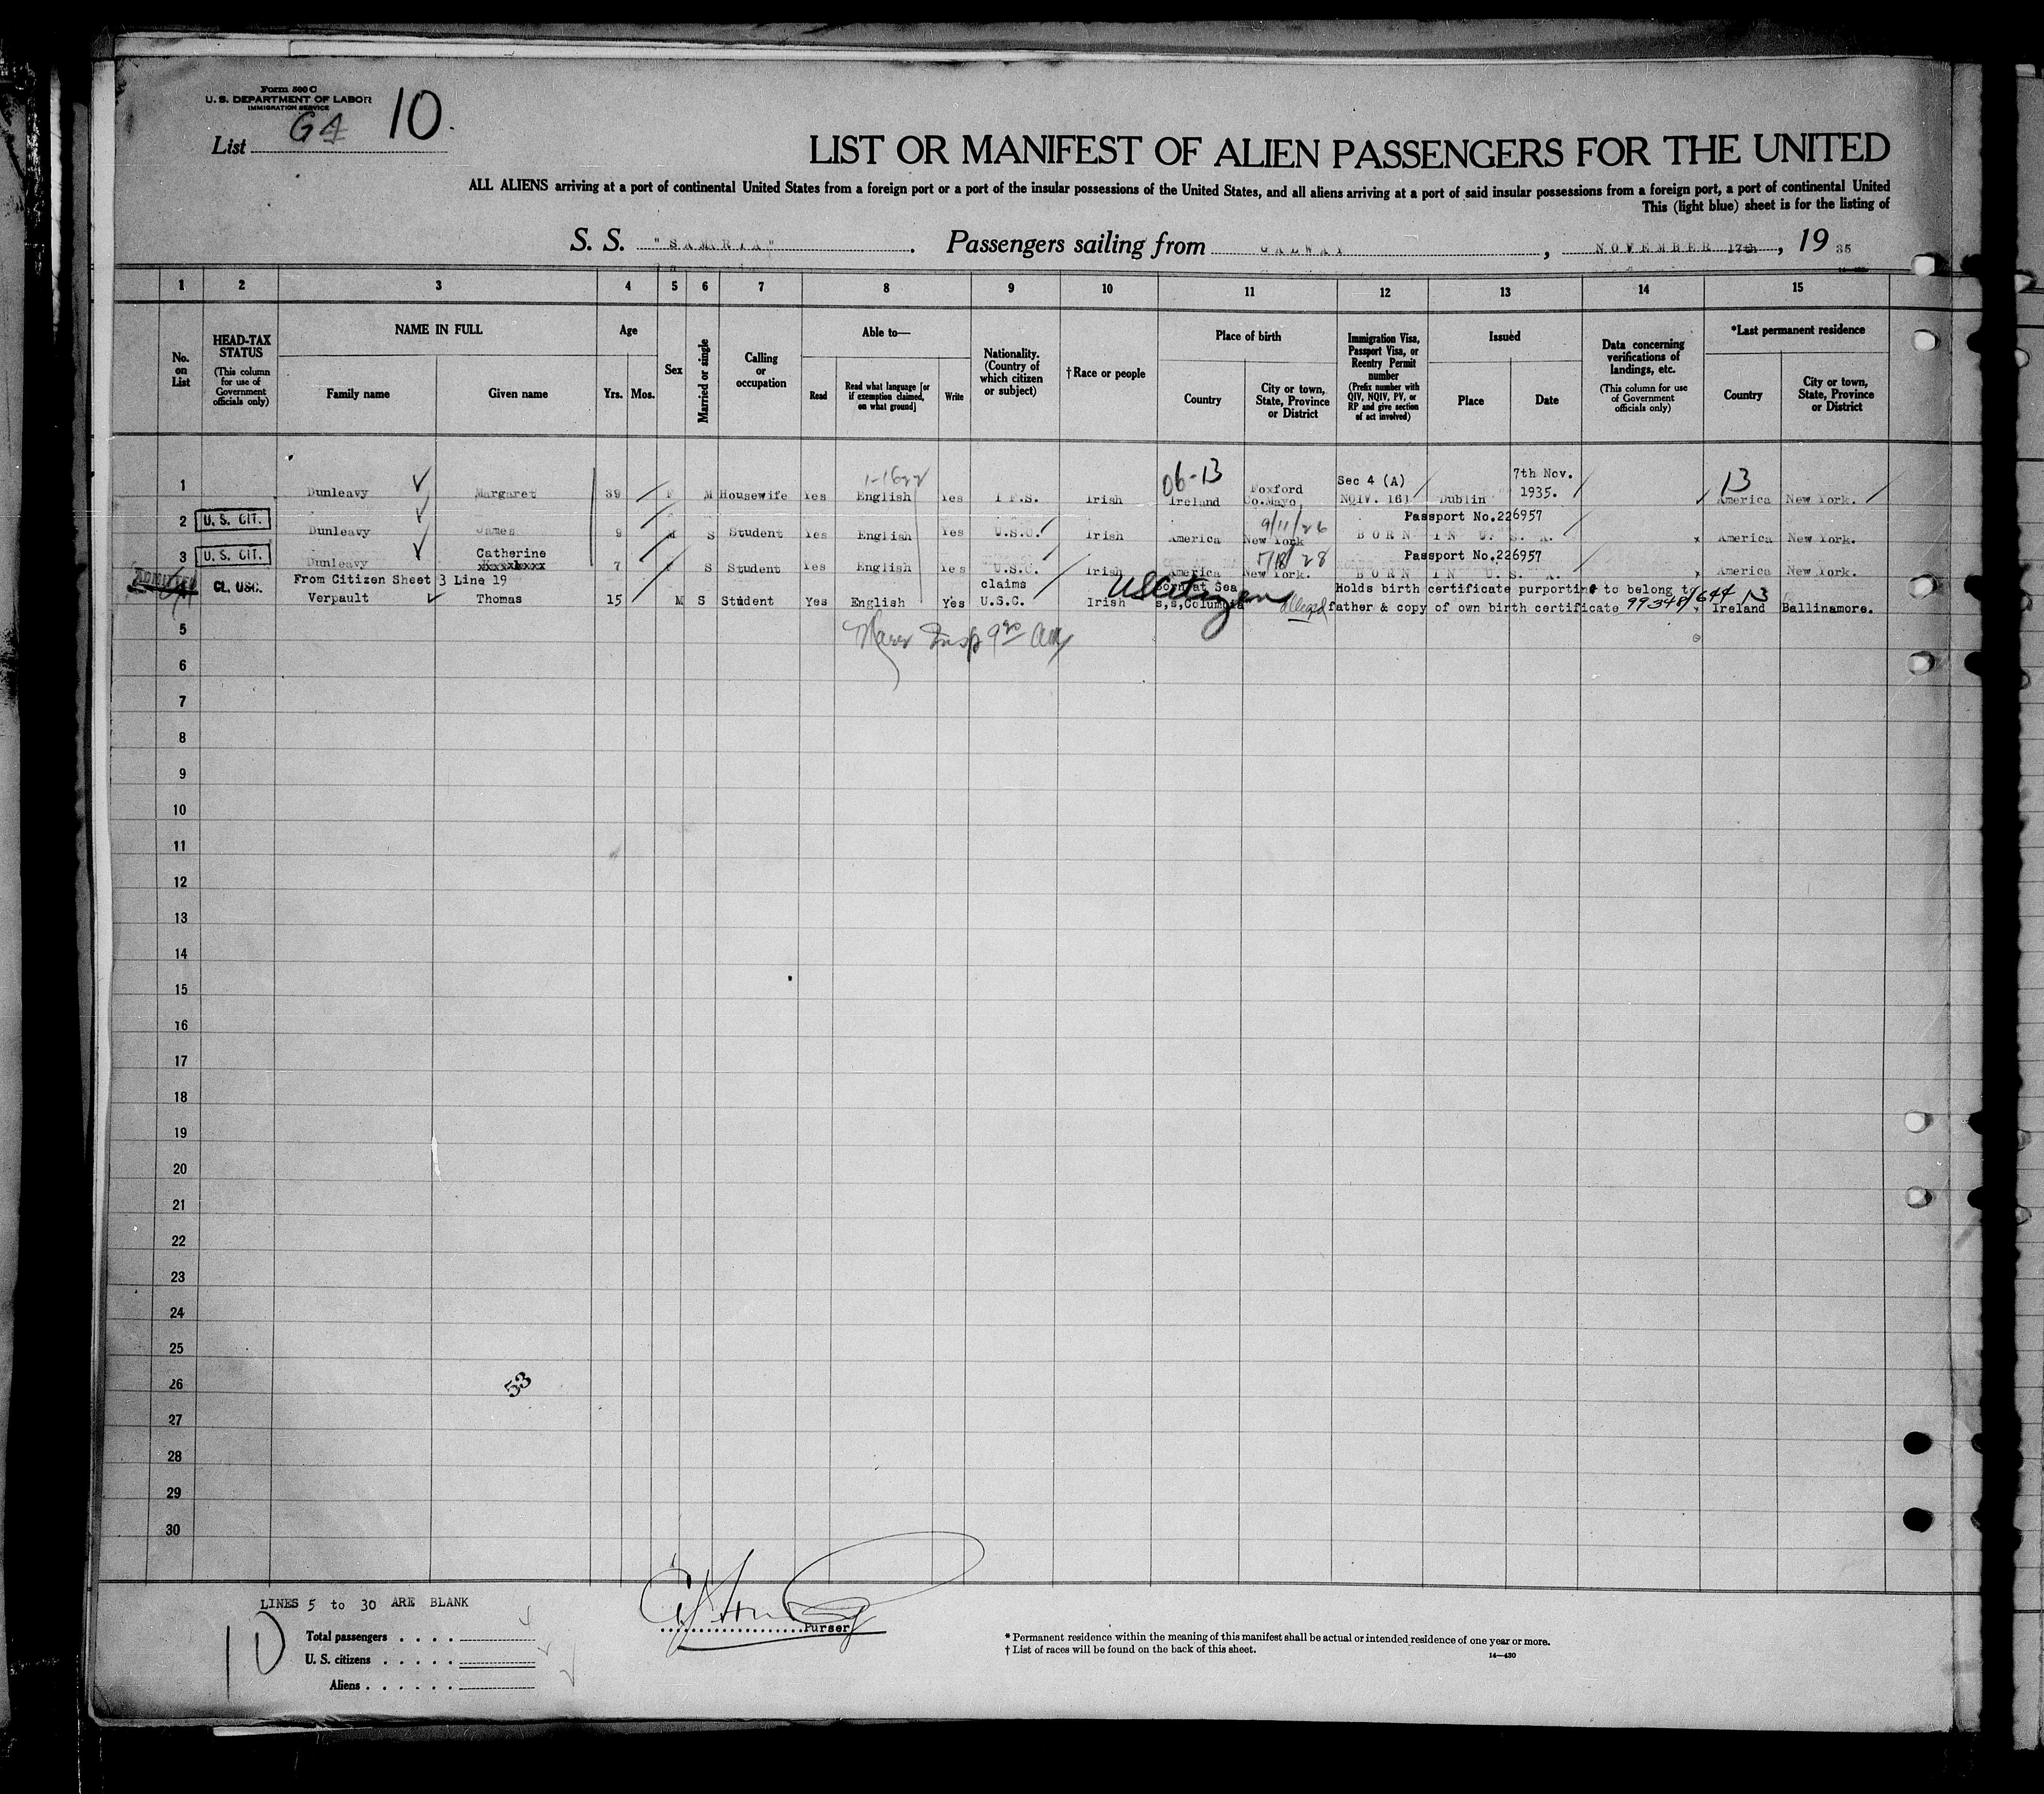 Form 500 C
U. S. DEPARTMENT OF LABOR
IMMIGRATION SERVICE
List G4 10.
LIST OR MANIFEST OF ALIEN PASSENGERS FOR THE UNITED
ALL ALIENS arriving at a port of continental United States from a foreign port or a port of the insular possessions of the United States, and all aliens arriving at a port of said insular possessions from a foreign port, a port of continental United
This (light blue) sheet is for the listing of
S. S. "SAMARIA". Passengers sailing from GALWAY, NOVEMBER 17th, 19 35
1 2 3 4 5 6 7 8 9 10 11 12 13 14 15
No. on List
HEAD-TAX STATUS
(This column for use of Government officials only)
NAME IN FULL
Family name Given name
Age
Yrs. Mos.
Sex
Married or single
Calling or occupation
Able to—
Read Read what language [or if exemption claimed, on what ground] Write
Nationality. (Country of which citizen or subject)
†Race or people
Place of birth
Country City or town, State, Province or District
Immigration Visa, Passport Visa, or Reentry Permit number
(Prefix number with QIV, NQIV, PV, or RP and give section of act involved)
Issued
Place Date
Data concerning verifications of landings, etc.
(This column for use of Government officials only)
*Last permanent residence
Country City or town, State, Province or District
06-13 Sec 4 (A) 7th Nov. 13
1 Dunleavy Margaret 39 F M Housewife Yes English Yes I F.S. Irish Ireland Foxford Co.Mayo NQIV. 161 Dublin 1935. America New York.
9/11/26 Passport No.226957
2 U. S. CIT. Dunleavy James 9 M S Student Yes English Yes U.S.C. Irish America New York BORN IN U. S. A. America New York.
Catherine 5/18/28 Passport No.226957
3 U. S. CIT. Dunleavy 7 F S Student Yes English Yes U.S.C. Irish America New York. BORN IN U. S. A. America New York.
ADMITTED From Citizen Sheet 3 Line 19 claims US Citizen Born at Sea Holds birth certificate purporting to belong to
4 CL. USC. Verpault Thomas 15 M S Student Yes English Yes U.S.C. Irish s,s,Columbia alleged father & copy of own birth certificate 99348/644 13 Ireland Ballinamore.
5 Insp 9 AM
6
7
8
9
10
11
12
13
14
15
16
17
18
19
20
21
22
23
24
25
26
53
27
28
29
30
LINES 5 to 30 ARE BLANK
10
Total passengers
U. S. citizens
Aliens
Purser
* Permanent residence within the meaning of this manifest shall be actual or intended residence of one year or more.
† List of races will be found on the back of this sheet.
14—430